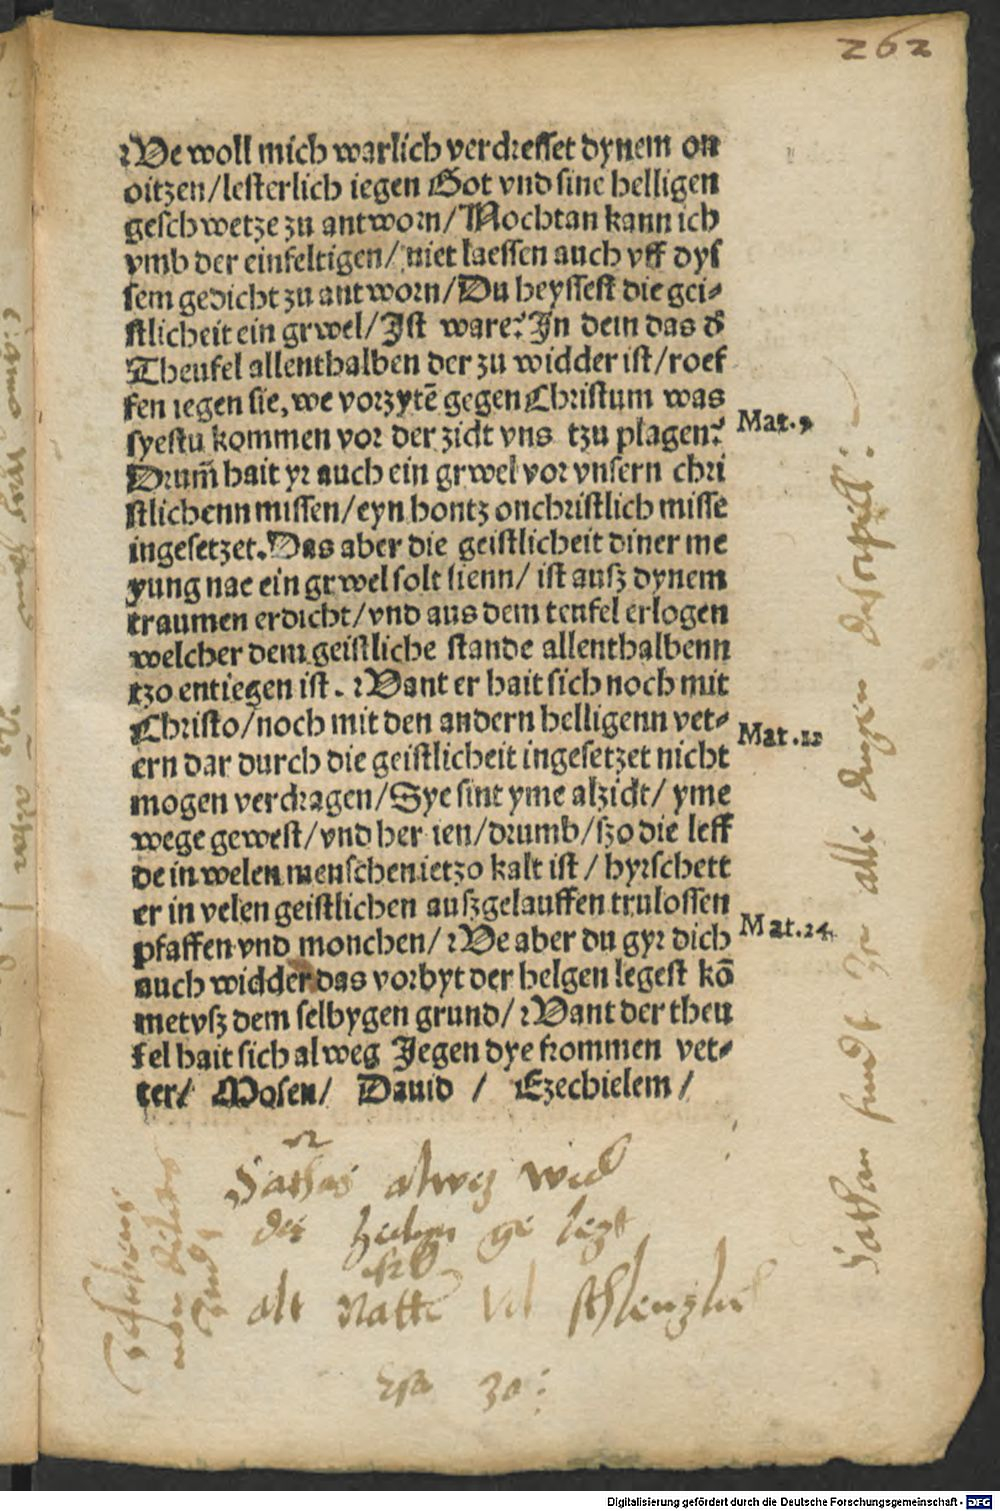 262
We woll mich warlich verdresset dynem on
oitzen/lesterlich iegen Got vnd sine helligen
geschwetze zu antworn/Nochtan kann ich
vmb der einfeltigen/niet laessen auch vff dys
sem gedicht zu antworn/Du heyssest die gei⸗
stlicheit ein grwel/Ist ware? In dem das d'
Theufel allenthalben der zu widder ist/roef
fen iegen sie, we vorzytē gegen Christum was
syestu kommen vor der zidt vns tzu plagen?
Mat.9
Drum̄ hait yr auch ein grwel vor vnsern chri
stlichenn missen/eyn hontz onchristlich misse
ingesetzet. Das aber die geistlicheit diner me
yung nae ein grwel solt sienn/ ist ausz dynem
traumen erdicht/vnd aus dem teufel erlogen
welcher dem geistliche stande allenthalbenn
tzo entiegen ist. Want er hait sich noch mit
Christo/noch mit den andern helligenn vet⸗
Mat.12
ern dar durch die geistlicheit ingesetzet nicht
mogen verdragen/Sye sint yme alzidt/ yme
wege gewest/vnd her ien/drumb/szo die leff
de in welen menschen ietzo kalt ist / hyrschett
er in velen geistlichen auszgelauffen trulossen
Mat.24
pfaffen vnd monchen/ We aber du gyr dich
auch widder das vorbyt der helgen legest kō
met vsz dem selbygen grund/ Want der theu
fel hait sich alweg Jegen dye frommen vet⸗
ter/ Mosen/ Dauid / Ezechielem/
alweg wid
ge legt
alt Natte
30:
Sathan
alle
Digitalisierung gefördert durch die Deutsche Forschungsgemeinschaft - DFG